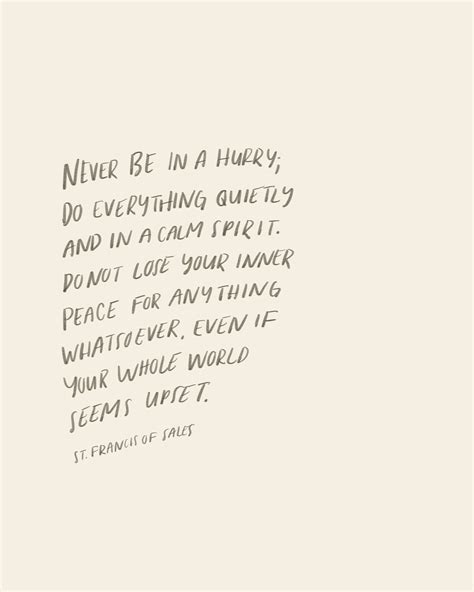 NEVER BE IN A HURRY;
DO EVERYTHING QUIETLY
AND IN A CALM SPIRIT.
DO NOT LOSE YOUR INNER
PEACE FOR ANYTHING
WHATSOEVER, EVEN IF
YOUR WHOLE WORLD
SEEMS UPSET.
ST. FRANCIS OF SALES